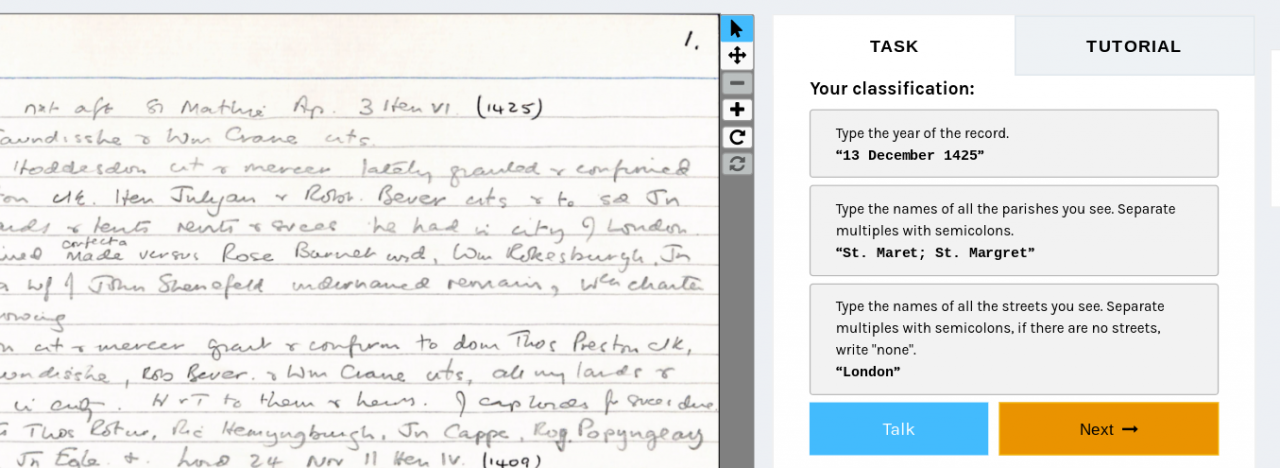 1.
nxt aft St Mathie Ap. 3 Hen VI. (1425)
aundisshe & Wm Crane cits.
Hoddesdon cit & mercer lately granted & confirmed
on clk. Hen Julyan & Robt. Bever cits & to sd Jn
ands & tents rents & svces he had in city of London.
confecta
ined made versus Rose Barnet wid, Wm Rokesburgh, Jn
a wf of John Shenefeld undernamed remain, wch charter
owing
n cit & mercer grant & confirm to dom Thos Preston clk,
undisshe, Rob Bever. & Wm Crane cits, all my lands &
in city. H & T to them & heirs. Of cap lords for svces due
Thos Rotur, Ric Hemyngburgh, Jn Cappe, Rog Popyngeay
Jn Eale. &. Lond 24 Nov 11 Hen IV. (1409)
TASK
TUTORIAL
Your classification:
Type the year of the record.
“13 December 1425”
Type the names of all the parishes you see. Separate
multiples with semicolons.
“St. Maret; St. Margret”
Type the names of all the streets you see. Separate
multiples with semicolons, if there are no streets,
write "none".
“London”
Talk
Next